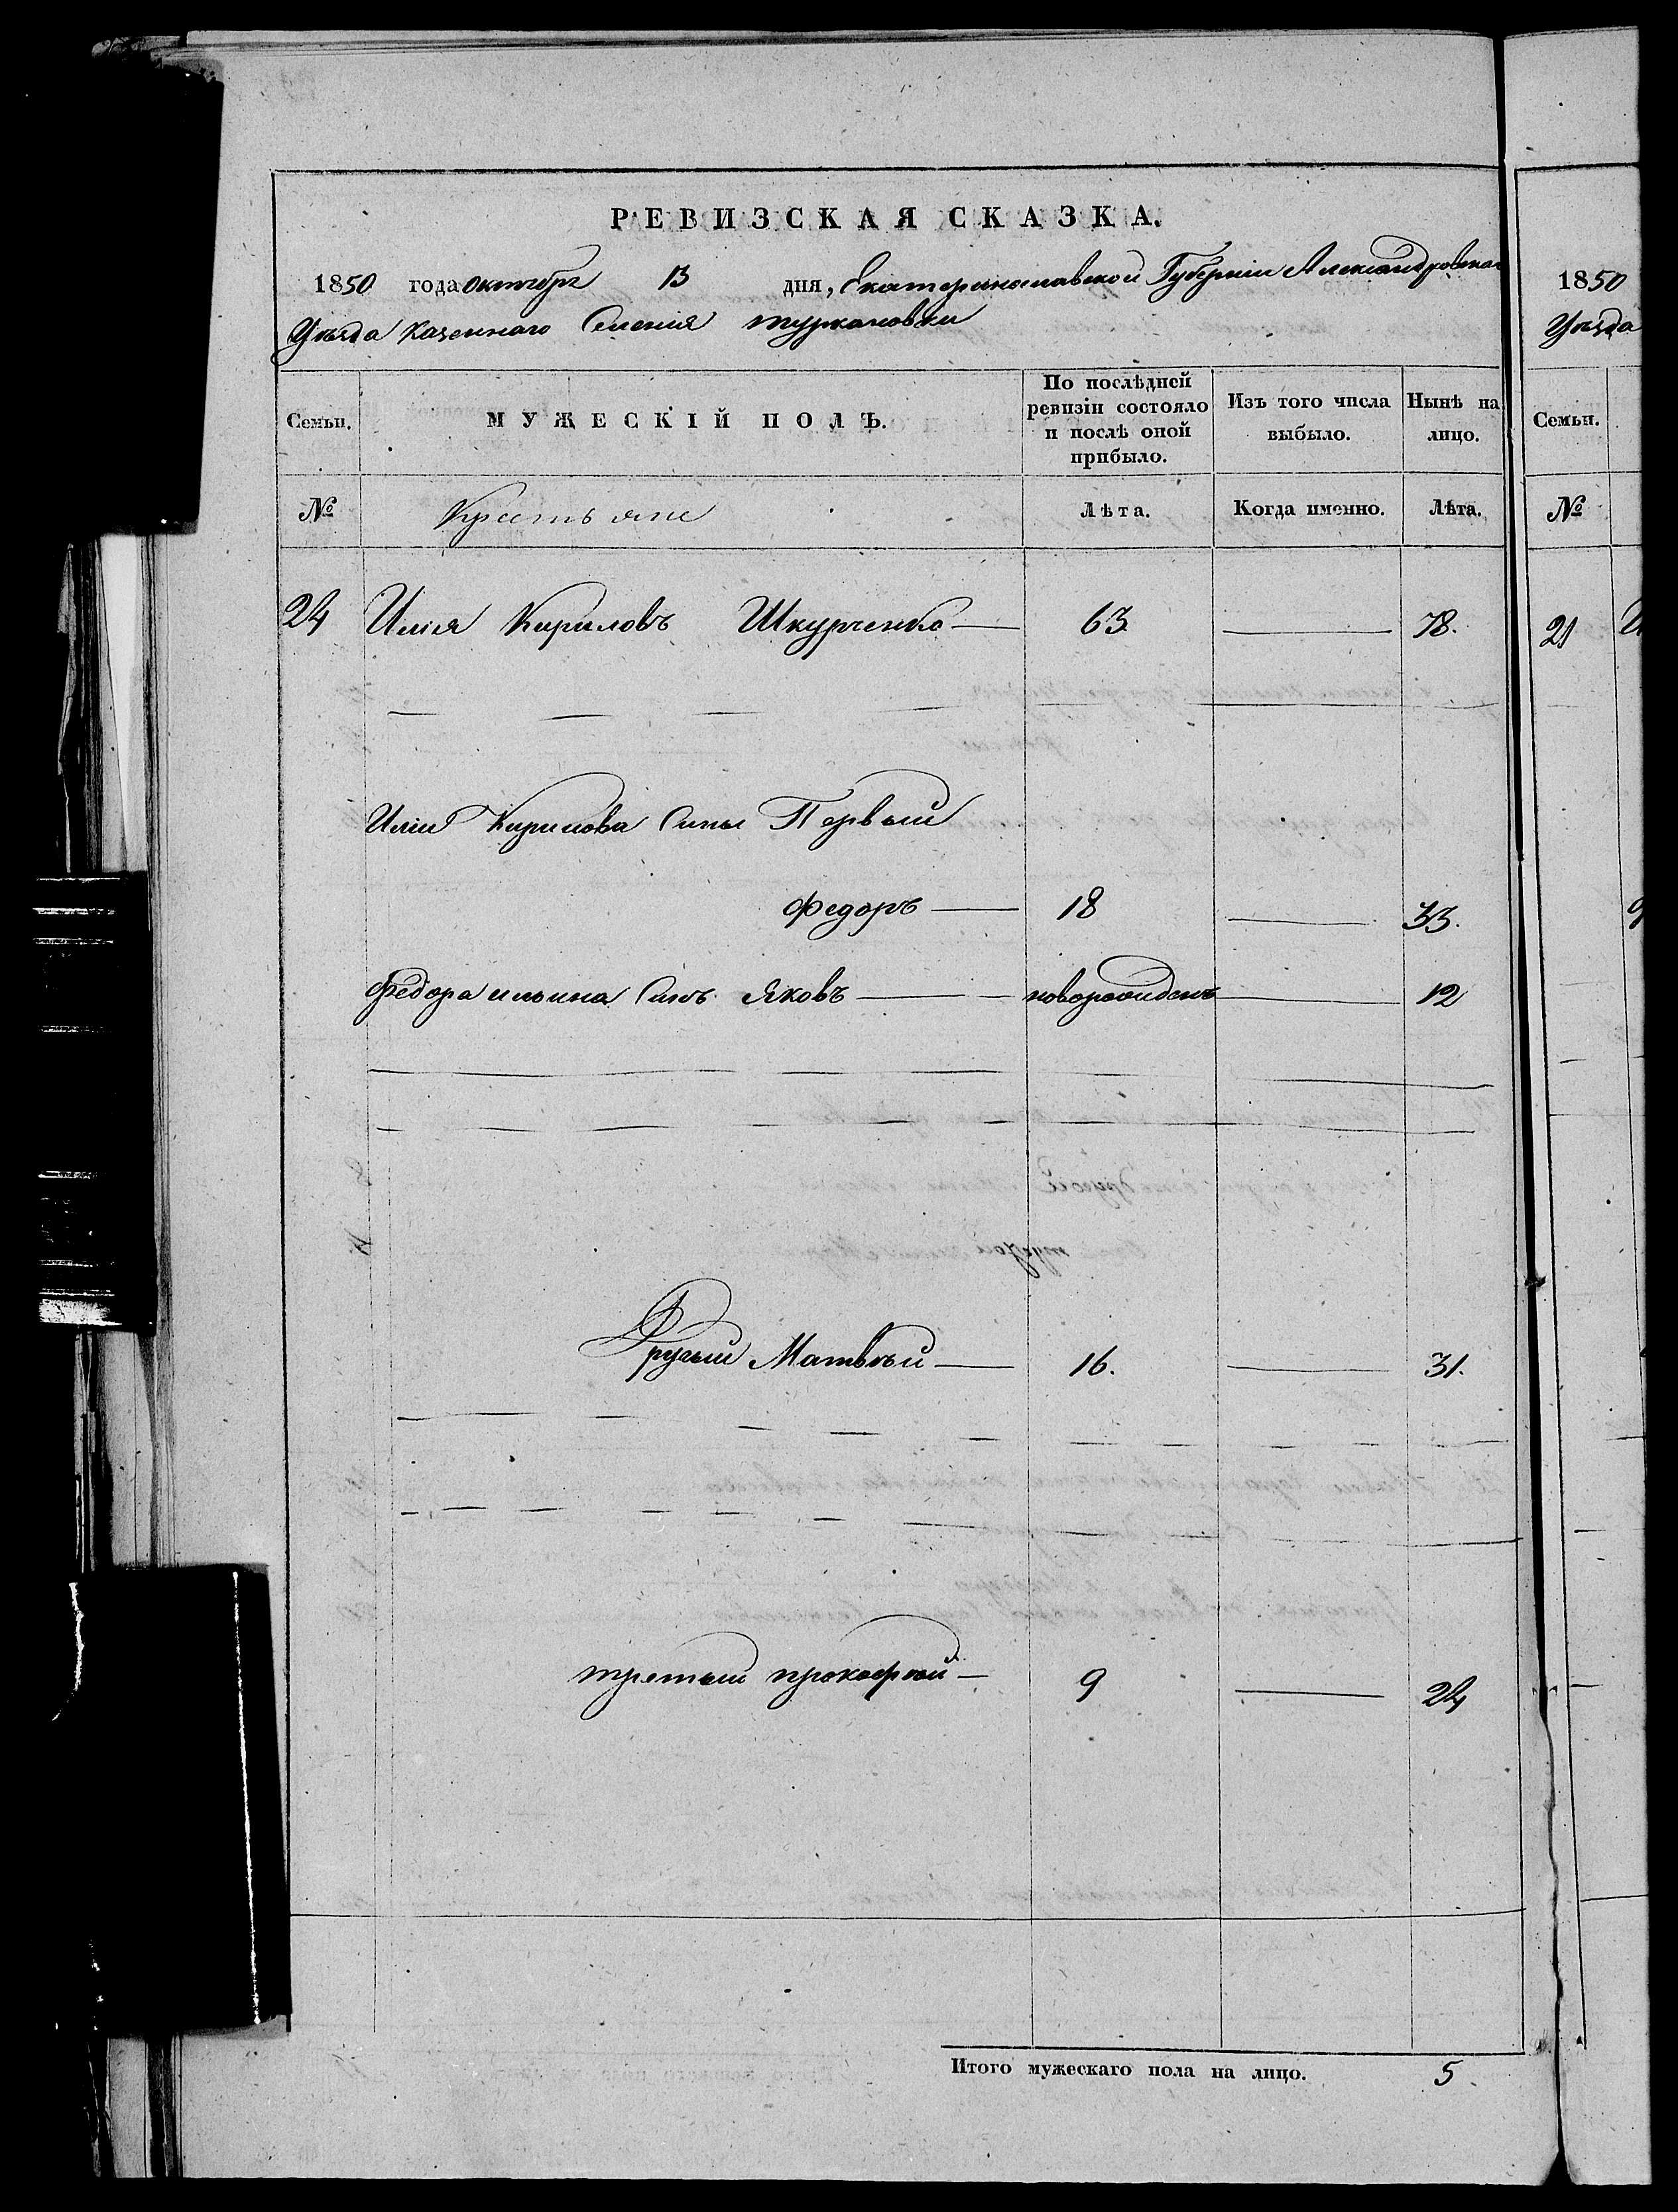 РЕВИЗСКАЯ СКАЗКА.
1850 года октября 13 дня, Екатеринославской Губерніи Александровскаго
Уѣзда Казеннаго Селенія
Семьи. МУЖЕСКІЙ ПОЛЪ. По послѣдней ревизіи состояло и послѣ оной прибыло. Изъ того числа выбыло. Нынѣ на лицо.
№ Крестьяне Лѣта. Когда именно. Лѣта.
24 Илія Кириловъ Шкурченко — 63 — 78.
Иліи Кирилова Сыны Первый
Федоръ — 18 — 33.
Федора ильина Сынъ Яковъ — новорожденъ — 12
Другий Матвѣй — 16. — 31.
третий прокофий — 9 — 24
Итого мужескаго пола на лицо. 5
1850
Уѣзда
Семьи.
№
21